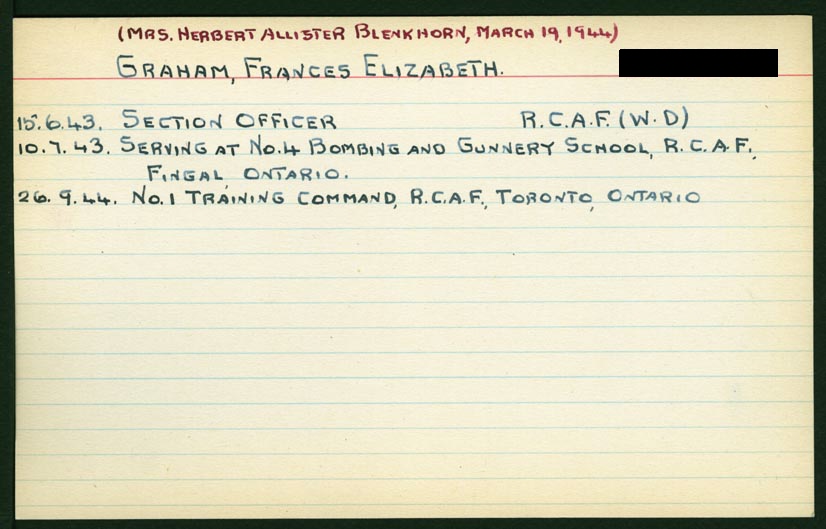 (MRS. HERBERT ALLISTER BLENKHORN, MARCH 19, 1944)
GRAHAM, FRANCES ELIZABETH.
15.6.43. SECTION OFFICER R.C.A.F. (W.D)
10.7.43. SERVING AT NO.4 BOMBING AND GUNNERY SCHOOL, R.C.A.F.,
FINGAL ONTARIO.
26.9.44. NO.1 TRAINING COMMAND, R.C.A.F., TORONTO, ONTARIO